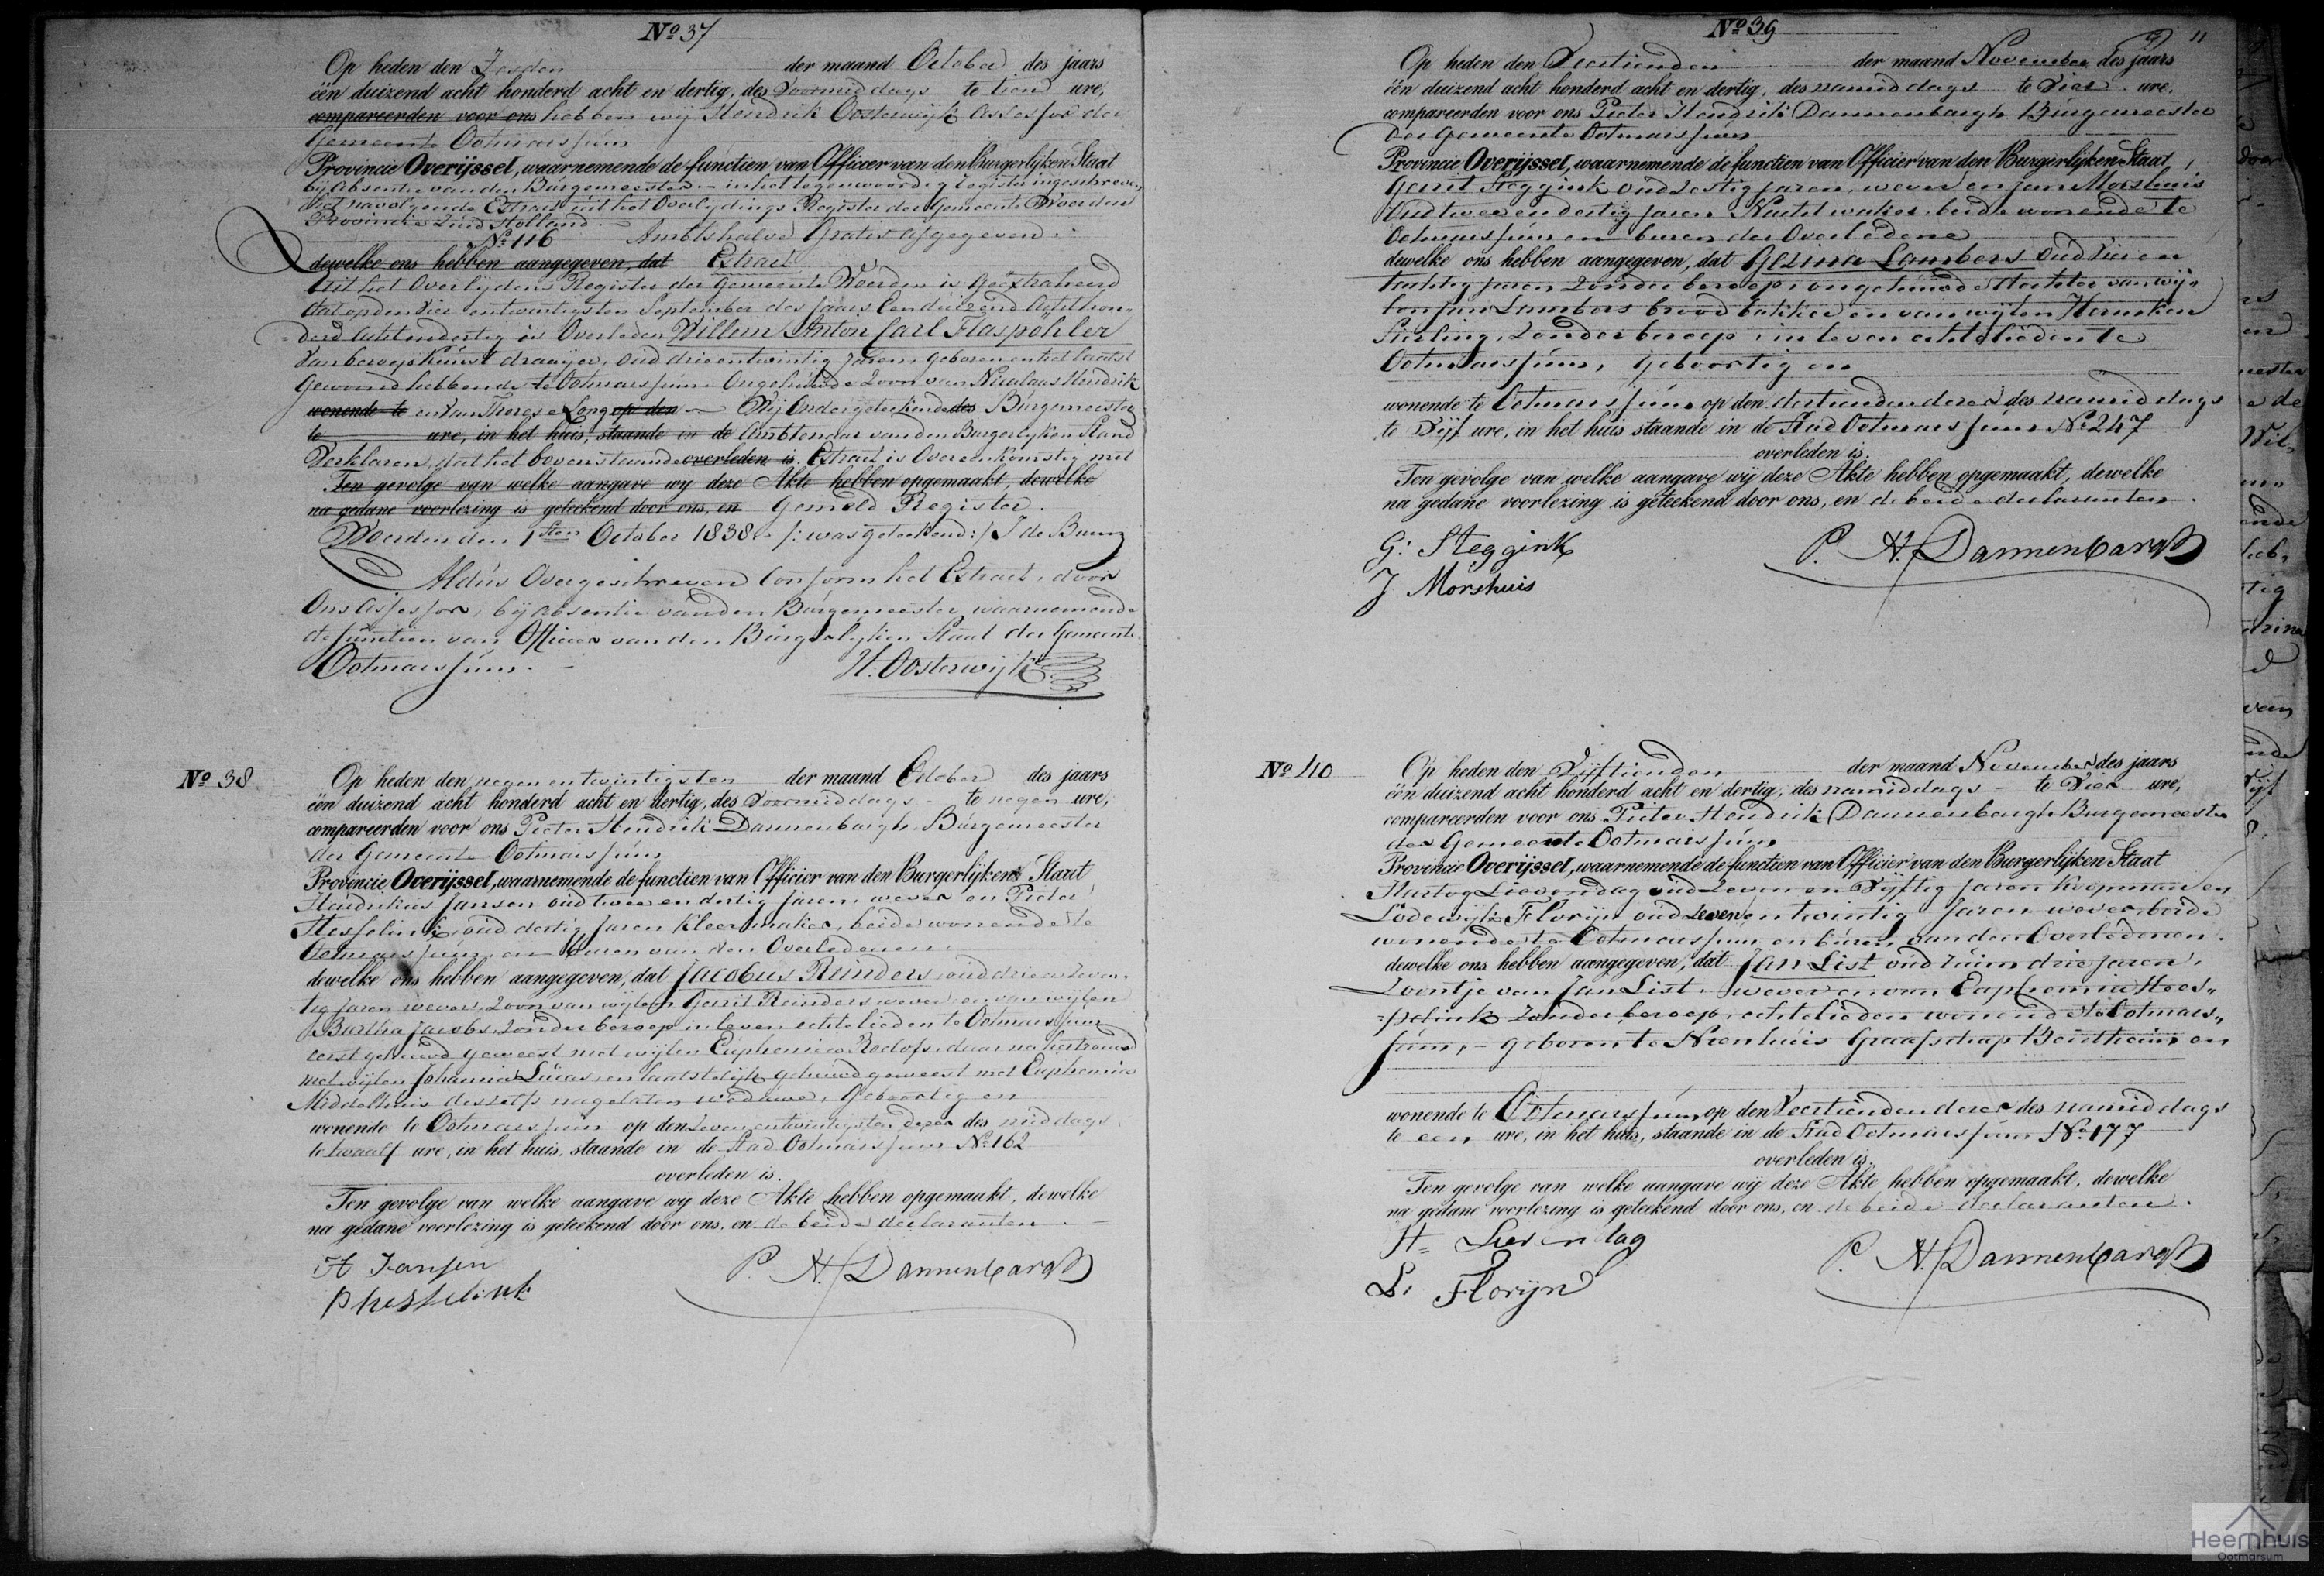 No 37
Op heden den Zesden der maand October des jaars
één duizend acht honderd acht en dertig, des Voormiddags te tien ure,
compareerden voor ons hebben wij Hendrik Oosterwijk Assessor der
Gemeente Ootmarssum
Provincie Overijssel, waarnemende de functien van Officier van den Burgerlijken Staat
bij absentie van den Burgemeester in het tegenwoordig register ingeschreven
het navolgende Extract uit het Overlijdings Register der Gemeente Woerden
Provincie Zuid Holland
No 116 Ambtshalve gratis afgegeven
dewelke ons hebben aangegeven, dat Extract
Uit het Overlydens Register der Gemeente Woerden is Geëxtraheerd
dat op den vier entwintigsten September des jaars Eenduizend Achthon-
derd Achtendertig is Overleden Willem Anton Carl Flaspohler
van beroep Kunst draayer, oud drieentwintig jaren geboren en het laatst
Gewoond hebbende te Ootmarssum Ongehuwde Zoon van Nicolaas Hendrik
wonende te en van Therese Long op den Wij Ondergeteekende des Burgemeester
te ure, in het huis, staande in de Ambtenaar van den Burgerlyken Stand
Verklaren, dat het bovenstaande overleden is. Extract is Overeenkomstig met
Ten gevolge van welke aangave wy deze Akte hebben opgemaakt, dewelke
na gedane voorlezing is geteekend door ons, en Gemeld Register.
Woerden den 1sten October 1838 /: was geteekend :/ J de Bruin
Aldus Overgeschreven Conform het Extract, door
Ons Assessor, bij absentie van den Burgemeester, waarnemende
de functien van Officier van den Burgerlyken Staat der Gemeente
Ootmarssum.
H. Oosterwijk
No 38
Op heden den negen entwintigsten der maand October des jaars
één duizend acht honderd acht en dertig, des Voormiddags te negen ure,
compareerden voor ons Pieter Hendrik Dannenbargh Burgemeester
der Gemeente Ootmarssum
Provincie Overijssel, waarnemende de functien van Officier van den Burgerlijken Staat
Hendrikus Jansen oud twee en dertig jaren, wever en Pieter
Hesselink, oud dertig jaren Kleermaker, beide wonende te
Ootmarssum en buren van den Overledenen
dewelke ons hebben aangegeven, dat Jacobus Reinders oud drie en zeven-
tig jaren wever, Zoon van wijlen Gerrit Reinders wever en van wijlen
Bartha Jacobs, zonder beroep in leven echtelieden te Ootmarssum
eerst gehuwd geweest met wijlen Euphemia Roelofs, daar na hertrouwd
met wijlen Johanna Lucas, en laatstelijk gehuwd geweest met Euphemia
Middelhuis deszelfs nagelaten weduwe, Geboortig en
wonende te Ootmarssum op den Zeven entwintigsten dezer des middags
te twaalf ure, in het huis, staande in de Stad Ootmarssum No 162
overleden is.
Ten gevolge van welke aangave wy deze Akte hebben opgemaakt, dewelke
na gedane voorlezing is geteekend door ons, en de beide declaranten.
H Jansen
P Hesselink
P. H. Dannenbargh
No 39
11
Op heden den Veertienden der maand November des jaars
één duizend acht honderd acht en dertig, des namiddags te Vier ure,
compareerden voor ons Pieter Hendrik Dannenbargh Burgemeester
der Gemeente Ootmarssum
Provincie Overijssel, waarnemende de functien van Officier van den Burgerlijken Staat
Gerrit Steggink oud zestig jaren, wever en Jan Morshuis
Oud twee en dertig jaren Nachtwaker, beide wonende te
Ootmarssum en buren der Overledene
dewelke ons hebben aangegeven, dat Gezina Lambers oud Vier en
tachtig jaren Zonder beroep, ongehuwde dochter van wij-
len Jan Lambers broodbakker en van wijlen Harmken
zonder beroep, in leven echtelieden te
Ootmarssum, Geboortig en
wonende te Ootmarssum op den dertienden dezer des namiddags
te Vyf ure, in het huis staande in de Stad Ootmarssum No 247
overleden is.
Ten gevolge van welke aangave wij deze Akte hebben opgemaakt, dewelke
na gedane voorlezing is geteekend door ons, en de beide declaranten.
G: Steggink
J Morshuis
P. H. Dannenbargh
No 40
Op heden den Vijftienden der maand November des jaars
één duizend acht honderd acht en dertig, des namiddags te Vier ure,
compareerden voor ons Pieter Hendrik Dannenbargh Burgemeester
der Gemeente Ootmarssum
Provincie Overijssel, waarnemende de functien van Officier van den Burgerlijken Staat
Hartog Lievendag oud Zeven en Vyftig jaren Koopman en
Lodewijk Florijn oud zeven entwintig jaren wever, beide
wonende te Ootmarssum en buren van den Overledenen.
dewelke ons hebben aangegeven, dat Jan List oud ruim drie jaren,
Zoontje van Jan List, wever en van Euphemia Hes-
selink zonder beroep, echtelieden wonend te Ootmars-
sum, geboren te Nienhuis Graafschap Bentheim en
wonende te Ootmarssum op den Veertienden dezer des namiddags
te een ure, in het huis, staande in de Stad Ootmarssum No 177
overleden is.
Ten gevolge van welke aangave wij deze Akte hebben opgemaakt, dewelke
na gedane voorlezing is geteekend door ons, en de beide declaranten.
H= Lievendag
L: Florijn
P. H. Dannenbargh
Heemhuis
Ootmarsum